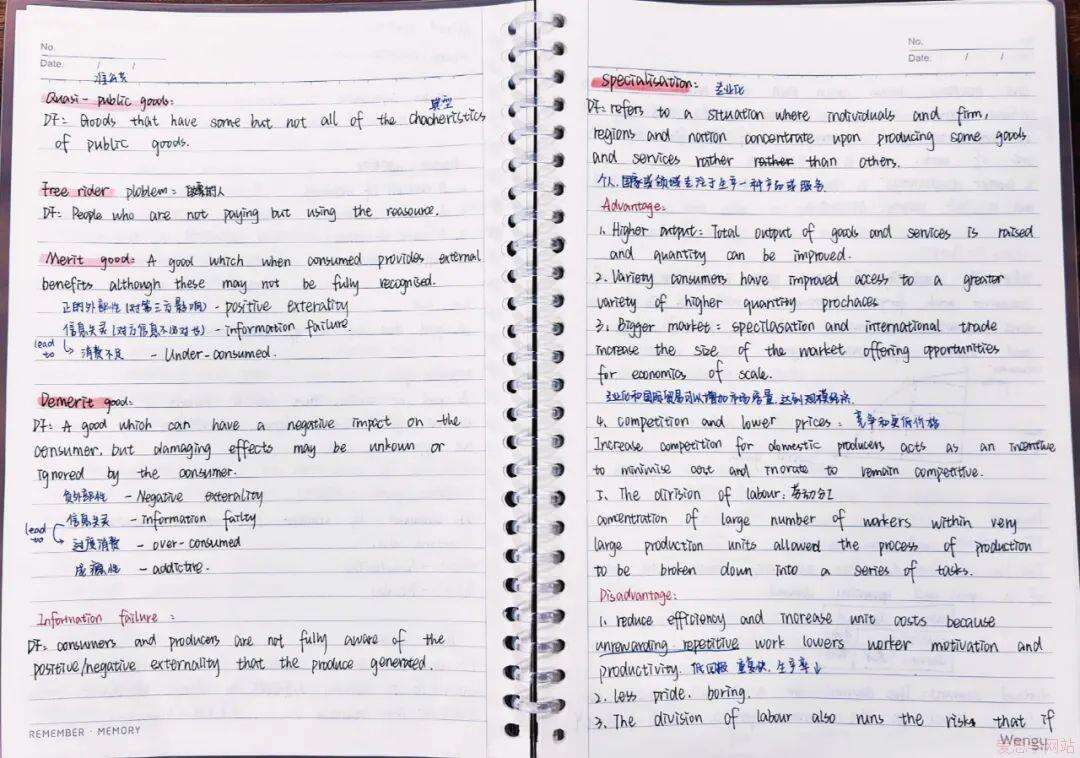 No.
Date. / /
准公共
Quasi- public goods:
典型
Df: Goods that have some but not all of the chacheristics
of public goods.
Free rider ploblem:
Df: People who are not paying but using the reasource.
Merit good: A good which when consumed provides external
benefits although these may not be fully recognised.
正的外部性 (对第三方影响) - positive exterality
信息失灵 - information failure.
lead to 消费不足 - Under-consumed.
Demerit good:
Df: A good which can have a negative impact on the
consumer, but damaging effects may be unkown or
ignored by the consumer.
负外部性 - Negative exterality
信息失灵 - information failty
lead to 过度消费 - over-consumed
成瘾性 - addictive.
Information failure :
Df: consumers and producers are not fully aware of the
positive/negative externality that the produce generated.
REMEMBER · MEMORY
No.
Date. / /
Specialisation: 专业化
Df: refers to a situation where individuals and firm,
regions and nation concentrate upon producing some goods
and services rather rather than others.
个人,国家或领域专注于生产一种产品或服务
Advantage:
1. Higher output: Total output of goods and services is raised
and quantity can be improved.
2. Variety consumers have improved access to a greater
variety of higher quantity prochaces
3. Bigger market: specilasation and international trade
increase the size of the market offering opportunities
for economics of scale.
专业化和国际贸易可以增加市场容量,达到规模经济
4. competition and lower prices: 竞争和更低价格
Increase competition for domestic producers acts as an incentive
to minimise cost and inorate to remain competitive.
5. The division of labour: 劳动分工
concentration of large number of workers within very
large production units allowed the process of production
to be broken down into a series of tasks.
Disadvantage:
1. reduce efficiency and increase unit costs because
unrewarding repetitive work lowers worker motivation and
productivity. 低回报 重复快,生产率↓
2. less pride. boring.
3. The division of labour also runs the risks that if
Wengu